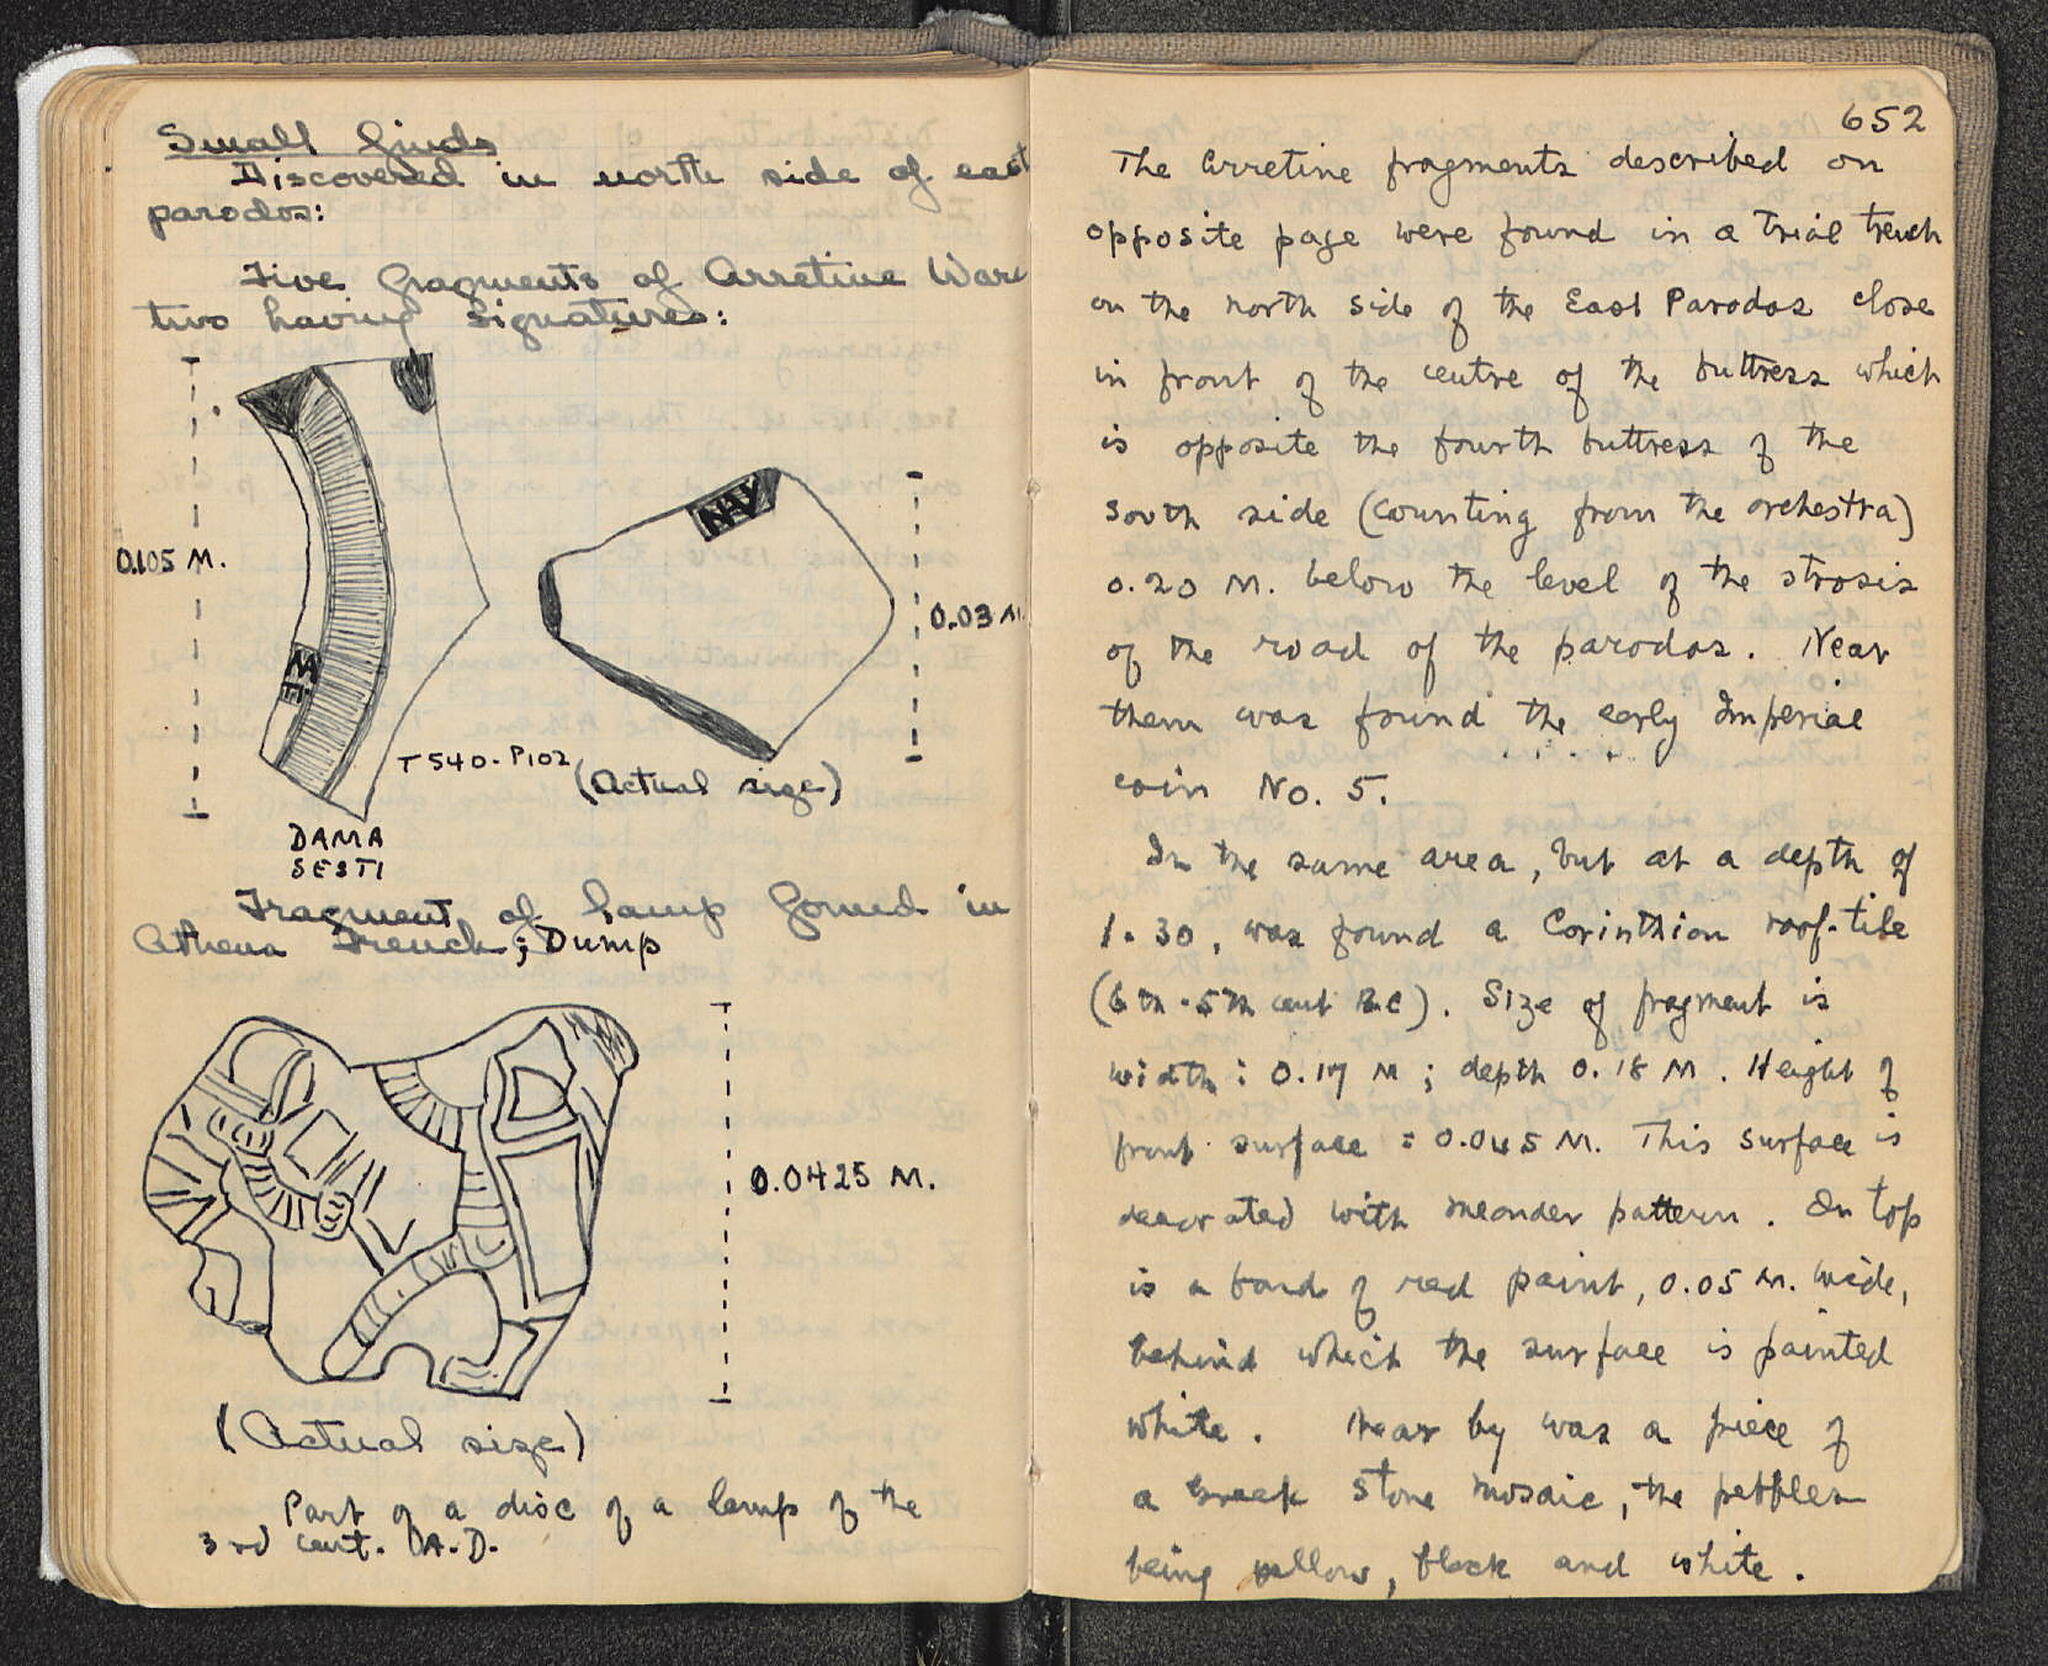 Small Finds
Discovered in north side of east
parodos:
Five fragments of Arretine Ware
two having signatures:
0.105 M.
NAV
0.03 M.
MA
TI
T540-P102
(Actual size)
DAMA
SESTI
Fragment of lamp found in
Athena Trench; Dump
0.0425 M.
(Actual size)
Part of a disc of a lamp of the
3rd cent. A.D.
652
The Arretine fragments described on
opposite page were found in a trial trench
on the north side of the East Parodos close
in front of the centre of the buttress which
is opposite the fourth buttress of the
south side (counting from the orchestra)
0.20 M. below the level of the strosis
of the road of the parodos. Near
them was found the early Imperial
coin No. 5.
In the same area, but at a depth of
1.30, was found a Corinthian roof-tile
(6th-5th cent B.C). Size of fragment is
width: 0.17 M; depth 0.18 M. Height of
front surface = 0.045 M. This surface is
decorated with meander pattern. On top
is a band of red paint, 0.05 M. wide,
behind which the surface is painted
white. Near by was a piece of
a Greek stone mosaic, the pebbles
being yellow, black and white.